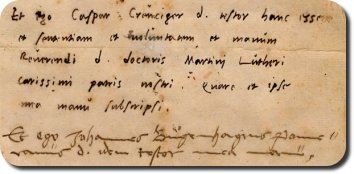 Et ego Caspar Creuciger d. testor hanc esse
et sententiam et voluntatem et manum
Reverendi d. doctoris Martini Lutheri
carissimi patris nostri. Quare et ipse
mea manu subscripsi.
Et ego Johannes Bugenhagius Pome=
ranus d. idem testor mea manu,